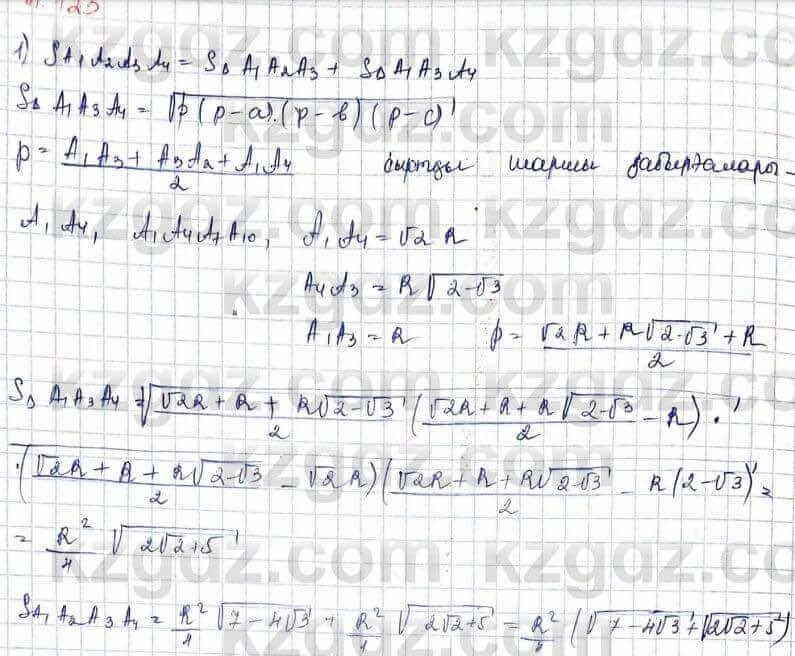 1) S A₁A₂A₃A₄ = S△ A₁A₂A₃ + S△ A₁A₃A₄
S△ A₁A₃A₄ = √(p(p-a)·(p-b)(p-c))
p = (A₁A₃ + A₃A₂ + A₁A₄)/2 сыртды шаршы қабырғалары -
A₁A₄, A₁A₄A₇A₁₀, A₁A₄ = √2 R
A₄A₃ = R√(2-√3)
A₁A₃ = R p = (√2R + R√(2-√3) + R)/2
S△ A₁A₃A₄ = √((√2R + R + R√(2-√3))/2 ((√2R + R + R√(2-√3))/2 - R) ·
· ((√2R + R + R√(2-√3))/2 - √2R)((√2R + R + R√(2-√3))/2 - R(2-√3) =
= R²/4 √(2√2+5)
S A₁A₂A₃A₄ = R²/4 √(7-4√3) + R²/4 √(2√2+5) = R²/4 (√(7-4√3) + √(2√2+5))
kzgdz.com